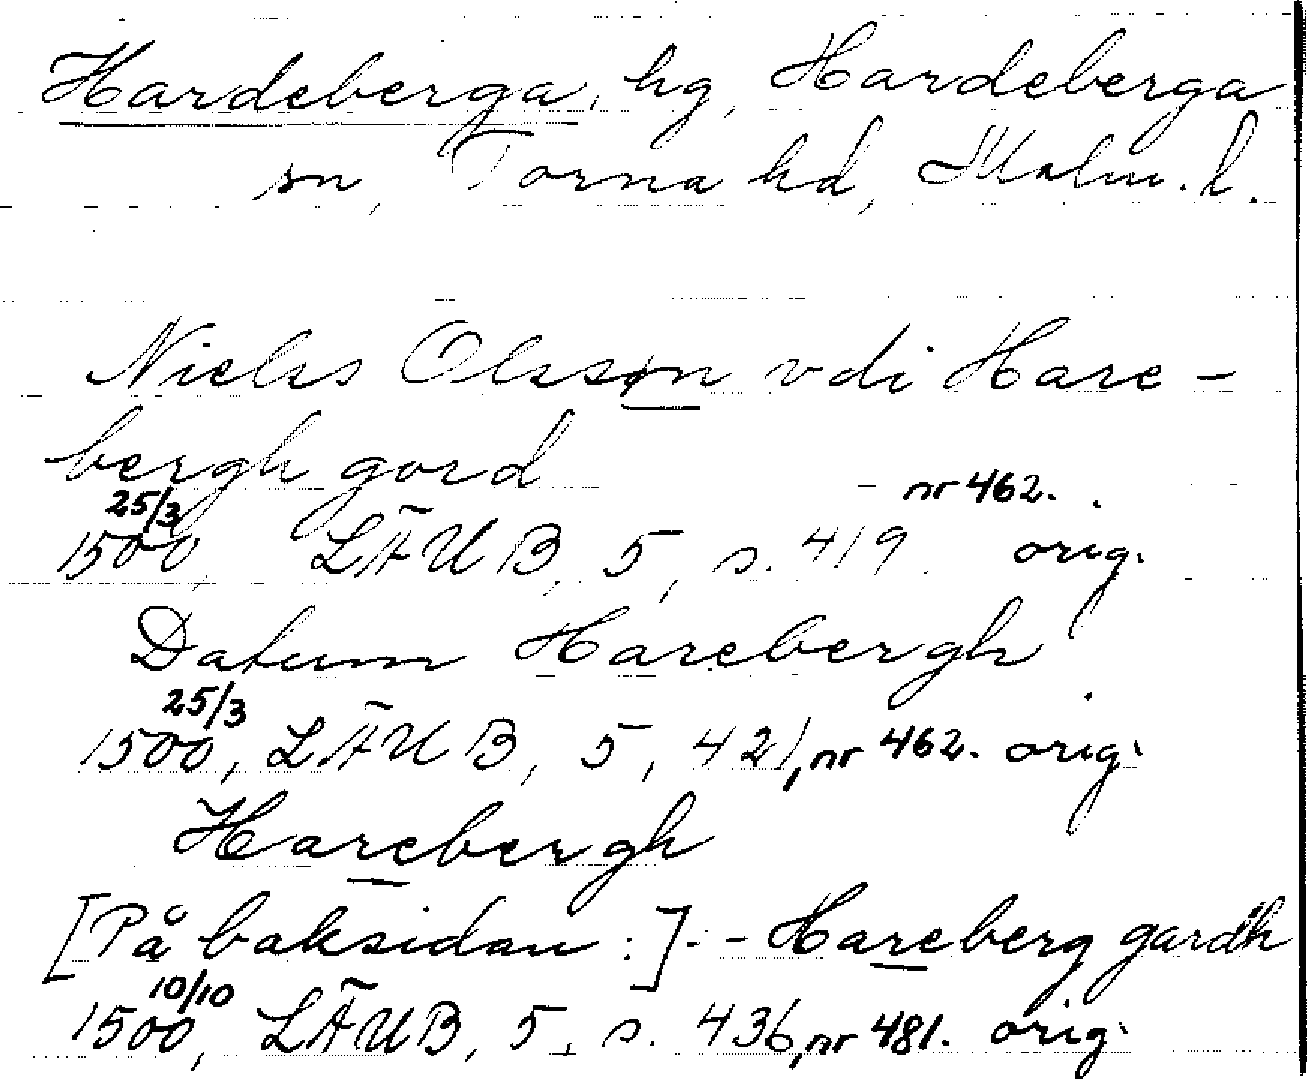 Hardeberga, hg, Hardeberga
sn, Torna hd, Malm. l.
Niels Olsson vdi Hare-
bergh gord
25/3 nr 462.
1500, LÄUB, 5, s. 419. orig.
Datum Harebergh
25/3
1500, LÄUB, 5, 421, nr 462. orig.
Harebergh
[På baksidan:]-- Hareberg gardh
10/10
1500, LÄUB, 5, s. 436, nr 481. orig.